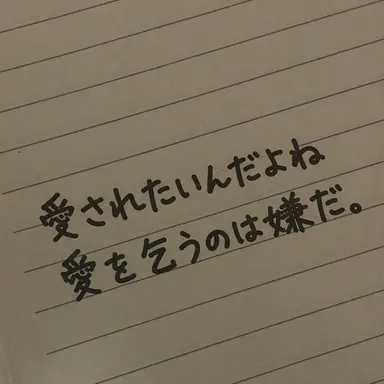 愛されたいんだよね
愛を乞うのは嫌だ。